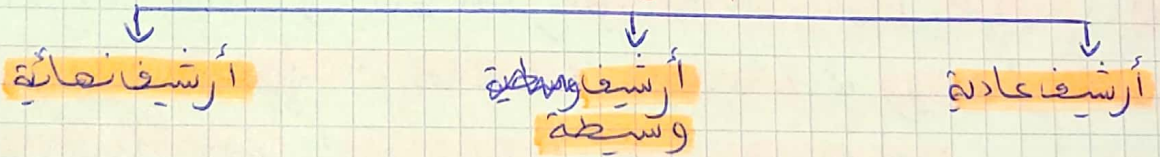 أرشيف عادية
أرشيف وسيطة
أرشيف نهائية